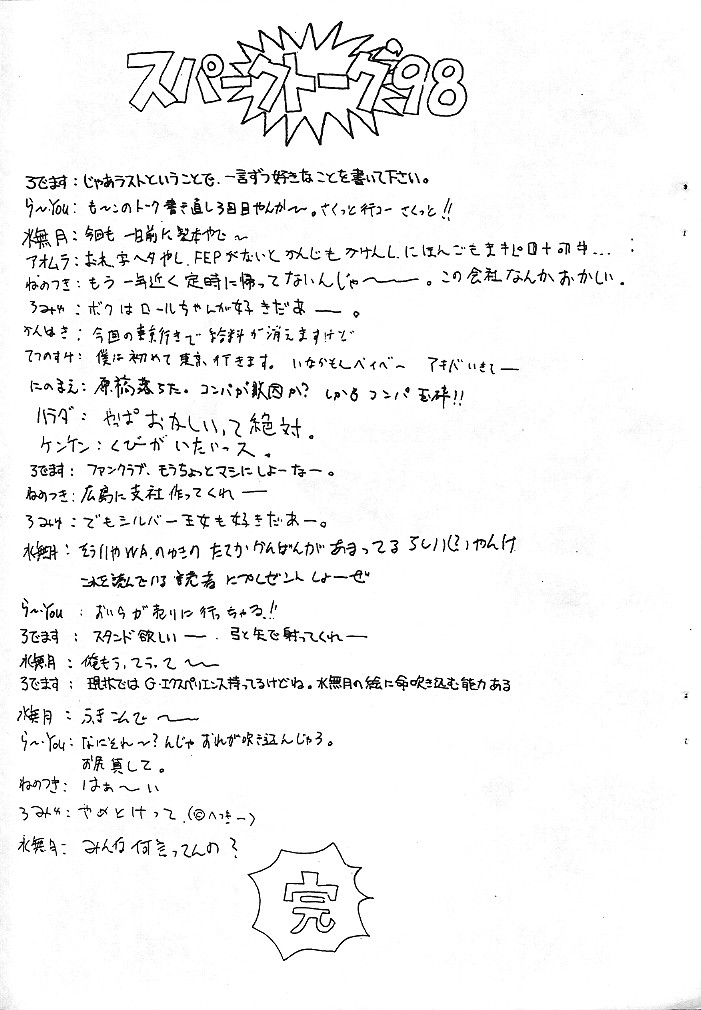 スパークトーク'98
ろでます：じゃあラストということで、一言ずつ好きなことを書いて下さい。
ら〜You：も〜このトーク書き直し3回目やんか〜。さくっと行コー さくっと!!
水無月：今回も 一日前に製本やで〜
アオムラ：おれ、字ヘタやし、FEPがないとかんじもかけんし、にほんごも
ねのつき：もう一年近く定時に帰ってないんじゃ〜〜。この会社なんかおかしい。
ろみか：ボクはロールちゃんが好きだあー。
かんはき：今回の東京行きで給料が消えますけど
てつのすけ：僕は初めて東京行きます。いなかもんベイベ〜 アキバいきてー
にのまえ：原稿落ちた。コンパが敗因か？ しかもコンパ玉砕!!
ハラダ：やっぱおかしいって絶対。
ケンケン：くびがいたいっス。
ろでます：ファンクラブ、もうちょっとマシにしよーなー。
ねのつき：広島に支社作ってくれー
ろみか：でもシルバー王女も好きだあー。
水無月：そういやW.A.のゆきの たてかんばんがあまってるらしい(?)やんけ
これを読んでいる読者にプレゼントしよーぜ
ら〜You：おいらが売りに行っちゃる!!
ろでます：スタンド欲しいー 弓と矢で射ってくれー
水無月：俺もう、てるって〜〜
ろでます：現状ではG・エクスペリエンス持ってるけどね。水無月の絵に命吹き込む能力ある
水無月：ふきこんで〜〜
ら〜You：なにそれ〜？んじゃおれが吹き込んじゃろ。
お尻貸して。
ねのつき：はぁ〜い
ろみか：やめとけって(©べっきー)
水無月：みんな何言ってんの？
完